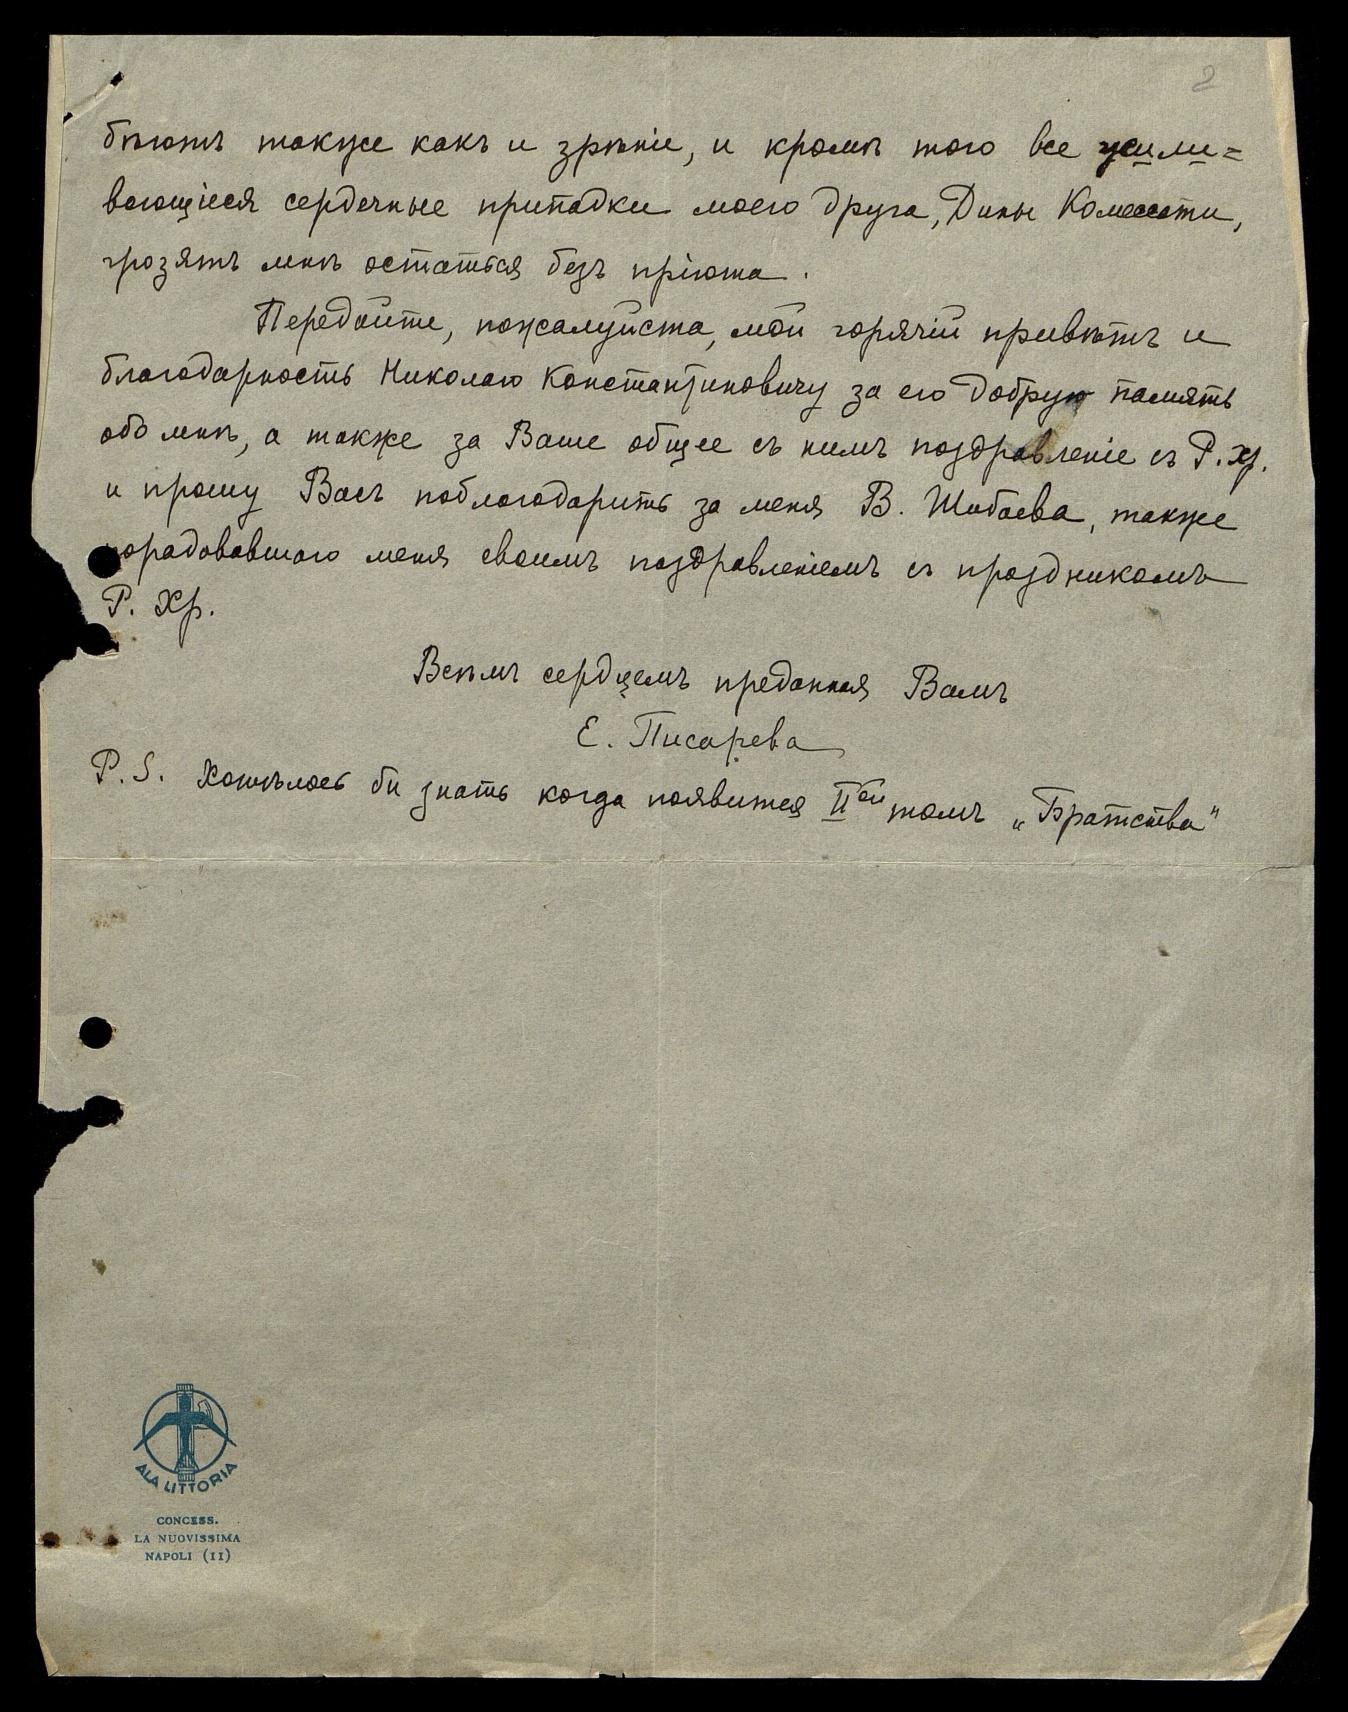 2
бѣютъ также какъ и зрѣніе, и кромѣ того все усили=
вающіеся сердечные припадки моего друга, Дины
грозятъ мнѣ остаться безъ пріюта.
Передайте, пожалуйста, мой горячій привѣтъ и
благодарность Николаю Константиновичу за его добрую память
обо мнѣ, а также за Ваше общее съ нимъ поздравленіе съ Р. Хр.
и прошу Васъ поблагодарить за меня В. Шибаева, также
порадовавшаго меня своимъ поздравленіемъ съ праздникомъ
Р. Хр.
Всѣмъ сердцемъ преданная Вамъ
Е. Писарева
P. S. Хотѣлось бы знать когда появится IIой томъ „Братства"
ALA LITTORIA
CONCESS.
LA NUOVISSIMA
NAPOLI (11)